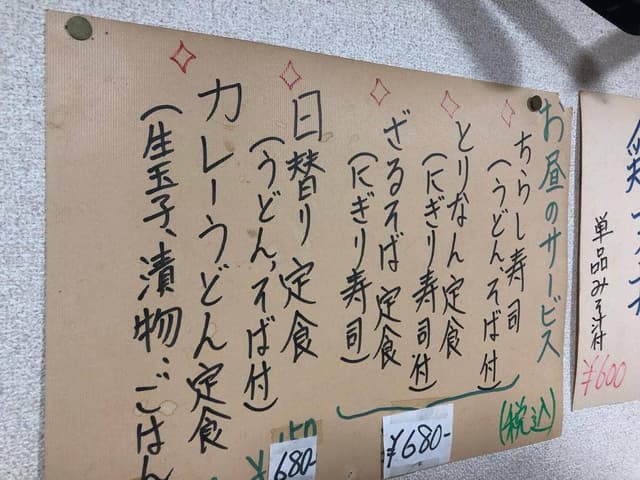 お昼のサービス
(税込)
ちらし寿司
(うどん、そば付)
とりなん定食
(にぎり寿司付)
ざるそば定食
(にぎり寿司)
¥680-
日替り定食
(うどん、そば付)
680-
カレーうどん定食
(生玉子、漬物、ごはん
単品みそ汁付
¥600